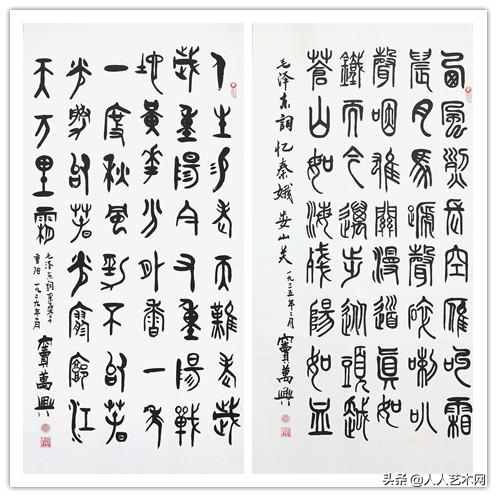 西風烈長空雁叫霜
晨月馬蹄聲碎喇叭
聲咽雄關漫道真如
鐵而今邁步從頭越
蒼山如海殘陽如血
毛泽东詞忆秦娥娄山关 一九三五年二月 竇萬興
人生易老天難老歲
歲重陽今又重陽戰
地黃花分外香一年
一度秋風勁不似春
光勝似春光寥廓江
天万里霜
毛泽东詞采桑子
重阳 一九二九年十月
竇萬興
头条 @人人艺术网